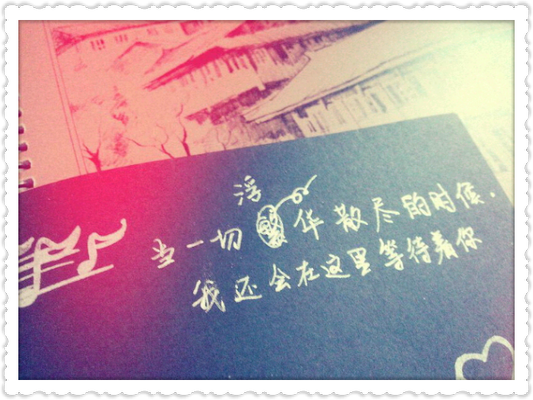 浮
当一切繁华散尽的时候.
我还会在这里等待着你